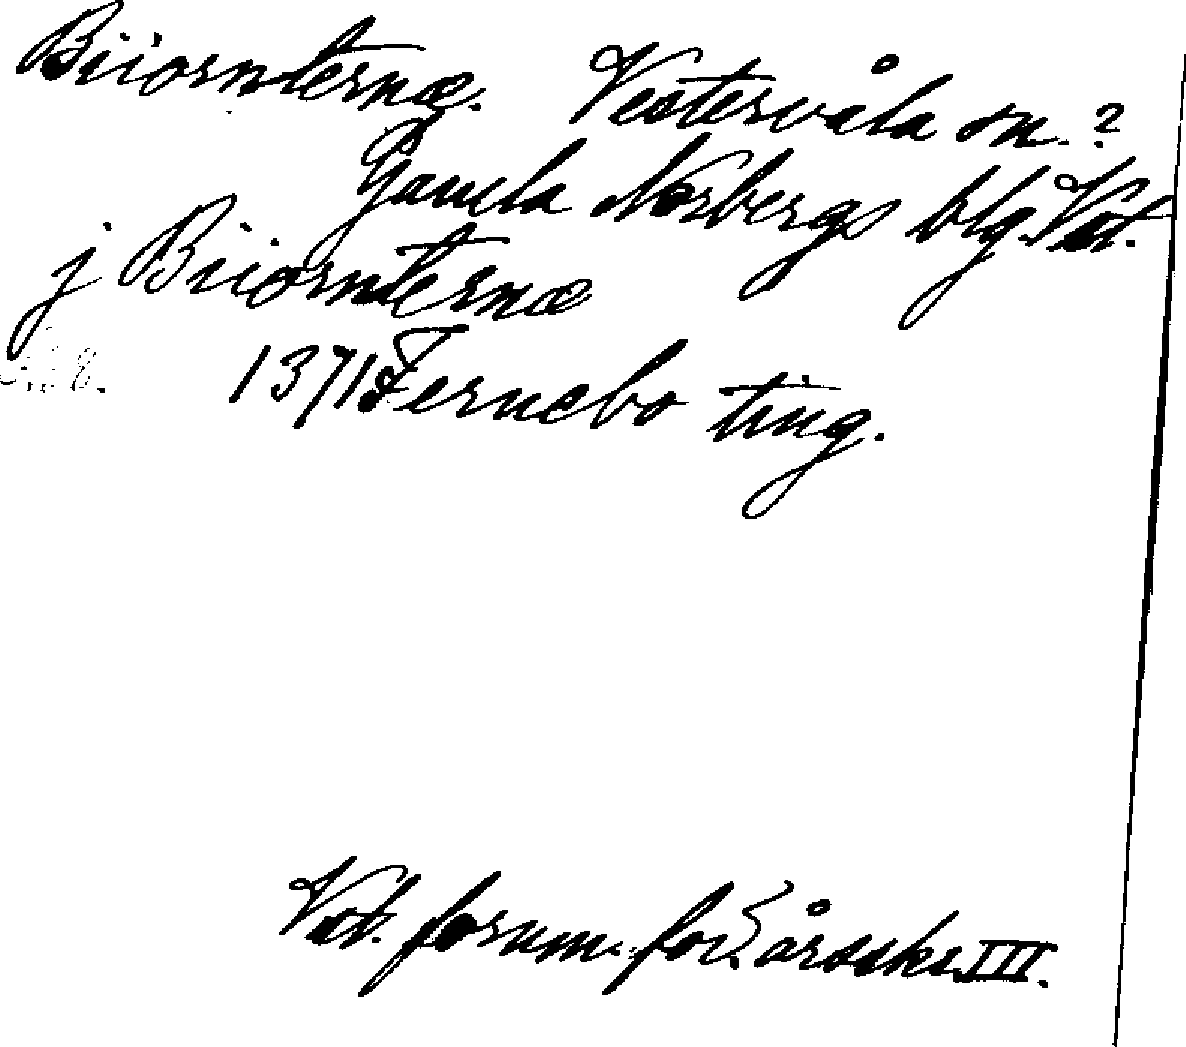 Biiornternæ. Vestervåla sn.?
Gamla Norbergs blg. Vst.
j Biiornternæ
1371 Fernebo ting.
Vst. fornm. för. årsskr. III.